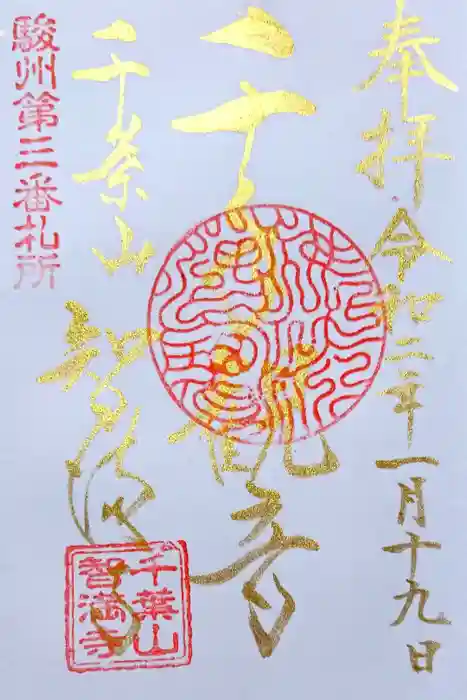 奉拝 令和二年一月十九日
千手観音
千葉山
智満寺
駿州第三番札所
千葉山
智満寺